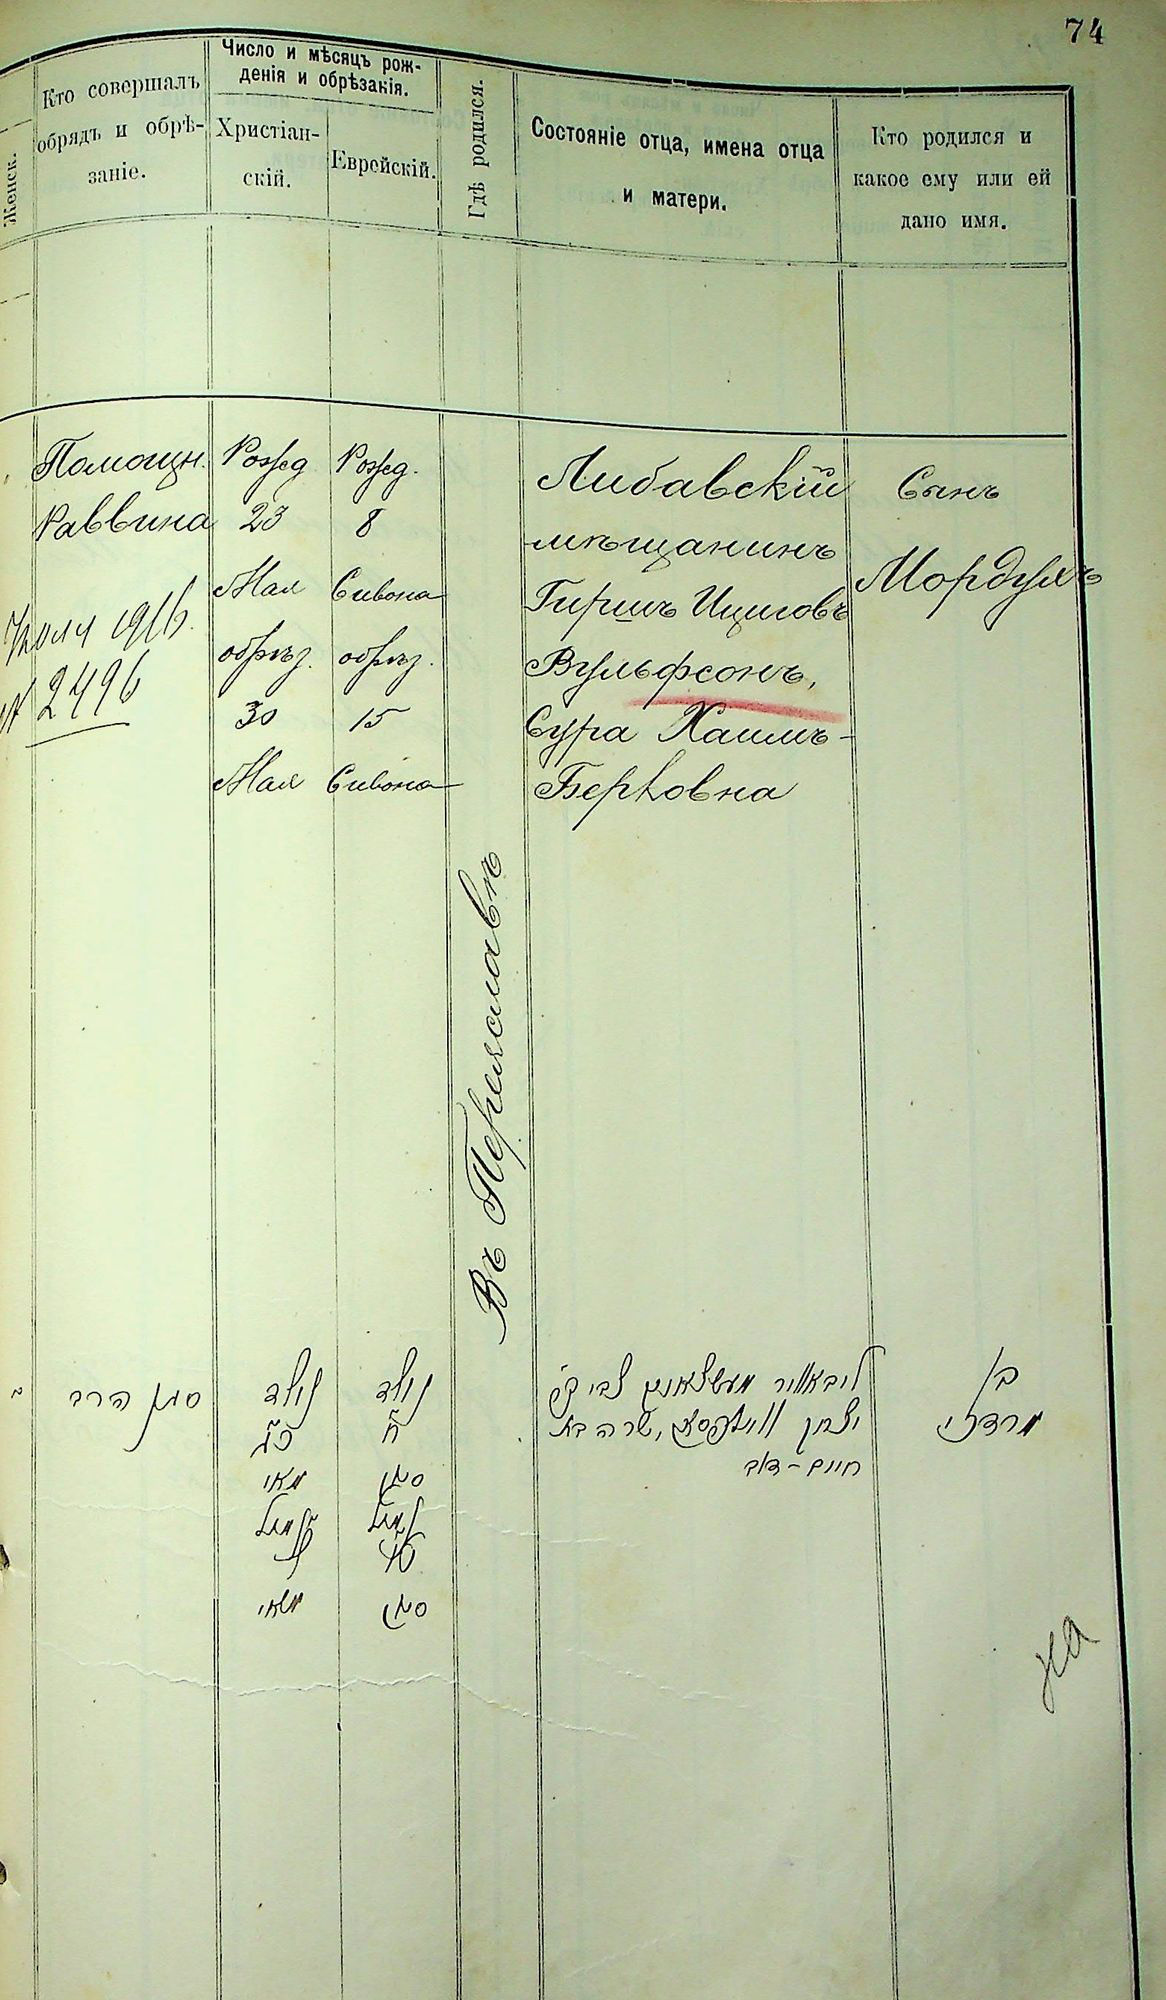 74
Женск.
Кто совершалъ
обрядъ и обрѣ-
заніе.
Число и мѣсяцъ рож-
денія и обрѣзакія.
Христіан-
скій.
Еврейскій.
Гдѣ родился.
Состояніе отца, имена отца
и матери.
Кто родился и
какое ему или ей
дано имя.
Помощн.
Раввина
1916.
2496
Рожд
23
Мая
обрѣз.
30
Мая
Рожд.
8
Сивона
обрѣз.
15
Сивона
Въ Переяславѣ
Либавскій
мѣщанинъ
Гиршъ Ициговъ
Вульфсонъ,
Сура Хаимъ-
Берковна
Сынъ
Мордухъ
סגן הרב
נולד
כ״ג
מאי
נימול
ל
מאי
נולד
ח
סיון
נימול
טו
סיון
צבי
יצחק וואלפסאן, שרה בת
חיים-דוב
בן
מרדכי